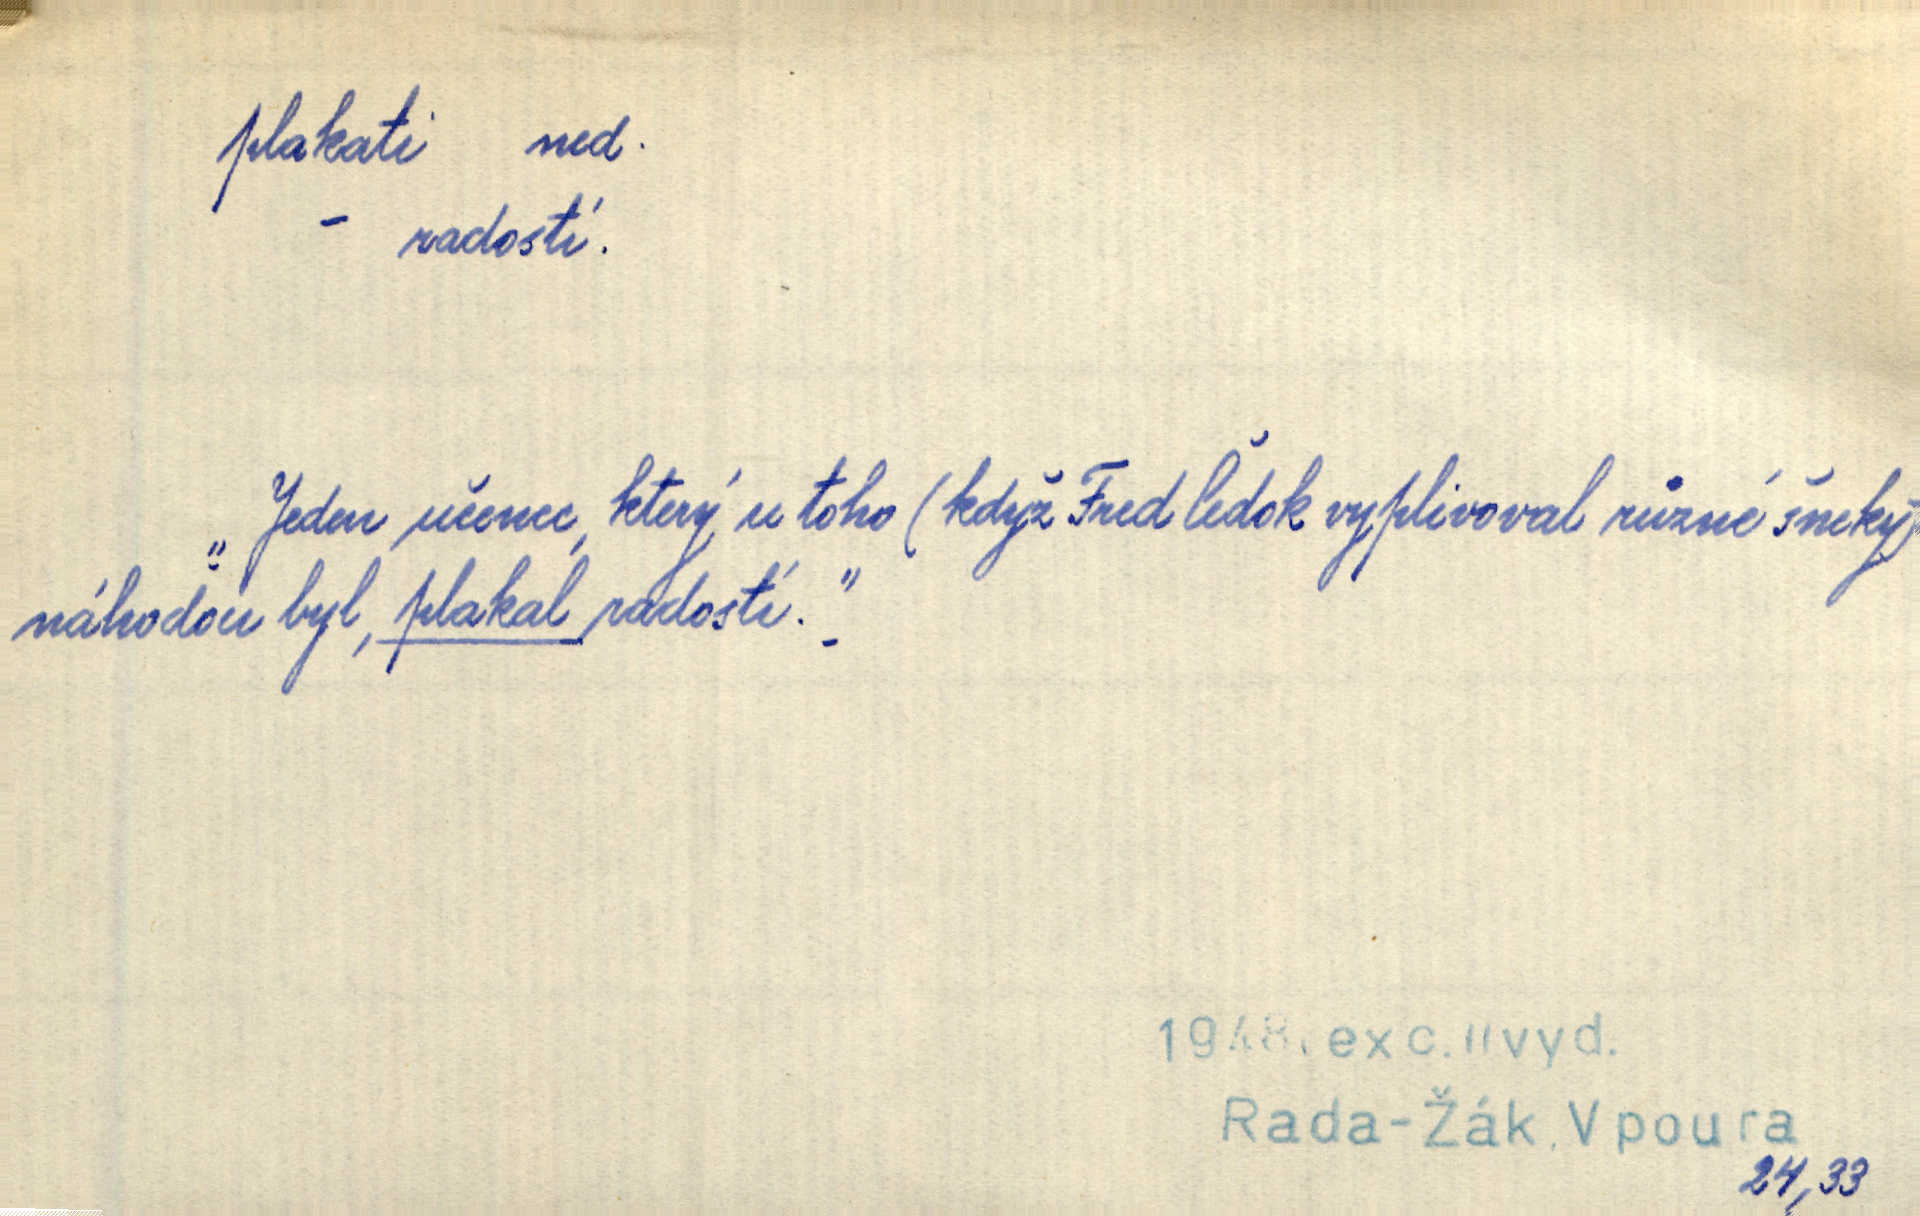 plakati ned.
- radostí.
„Jeden učenec, který u toho (když Fred lědok vyplivoval různé šneky)
náhodou byl, plakal radostí."
1948. exc. II vyd.
Rada-Žák, Vpoura
24,33